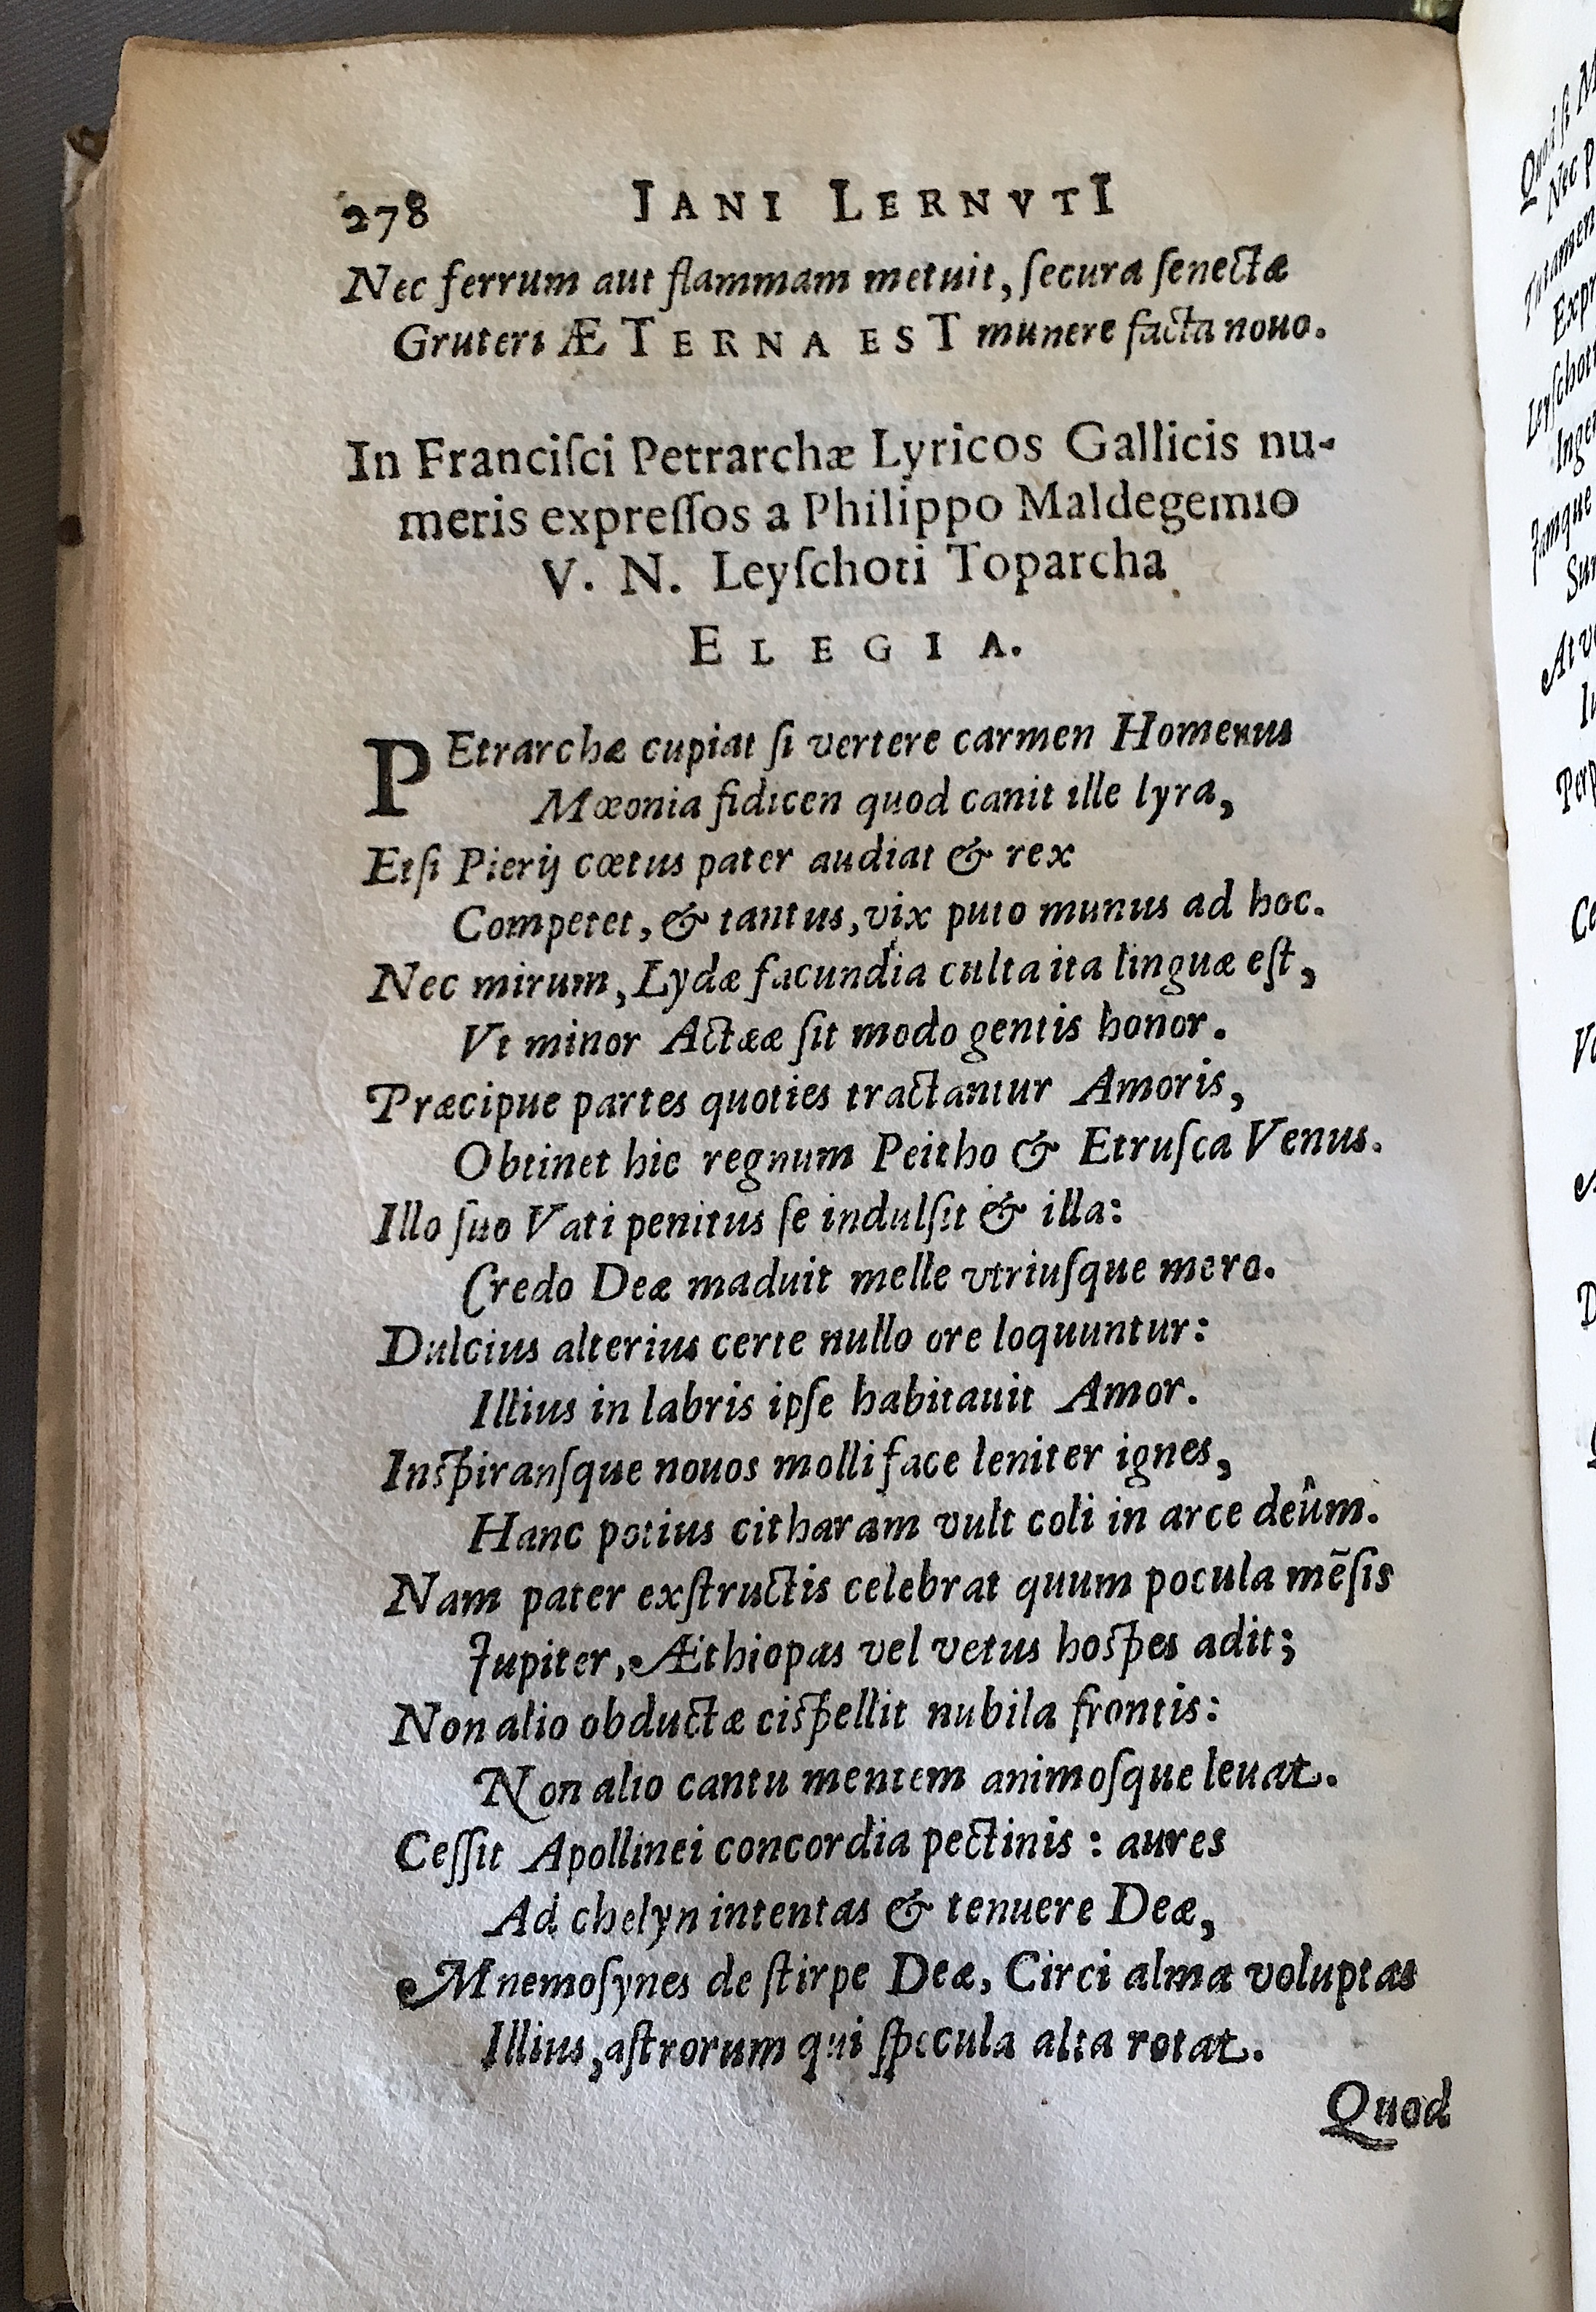 278 IANI LERNVTI
Nec ferrum aut flammam metuit, ſecura ſenectæ
Gruteri ÆTERNA EST munere facta nouo.
In Franciſci Petrarchæ Lyricos Gallicis nu-
meris expreſſos a Philippo Maldegemio
V. N. Leyſchoti Toparcha
ELEGIA.
PEtrarchæ cupiat ſi vertere carmen Homerus
Mœonia fidicen quod canit ille lyra,
Etſi Pierij cœtus pater audiat & rex
Competet, & tantus, vix puto munus ad hoc.
Nec mirum, Lydæ facundia culta ita linguæ eſt,
Vt minor Actææ ſit modo gentis honor.
Præcipue partes quoties tractantur Amoris,
Obtinet hic regnum Peitho & Etruſca Venus.
Illo ſuo Vati penitus ſe indulſit & illa:
Credo Deæ maduit melle vtriuſque mero.
Dulcius alterius certe nullo ore loquuntur:
Illius in labris ipſe habitauit Amor.
Inſpiranſque nouos molli face leniter ignes,
Hanc potius citharam vult coli in arce deûm.
Nam pater exſtructis celebrat quum pocula mẽſis
Jupiter, Æthiopas vel vetus hoſpes adit;
Non alio obductæ ciſpellit nubila frontis:
Non alio cantu mentem animoſque leuat.
Ceſſit Apollinei concordia pectinis : aures
Ad chelyn intentas & tenuere Deæ,
Mnemoſynes de ſtirpe Deæ, Circi alma voluptas
Illius, aſtrorum qui ſpecula alta rotat.
Quod